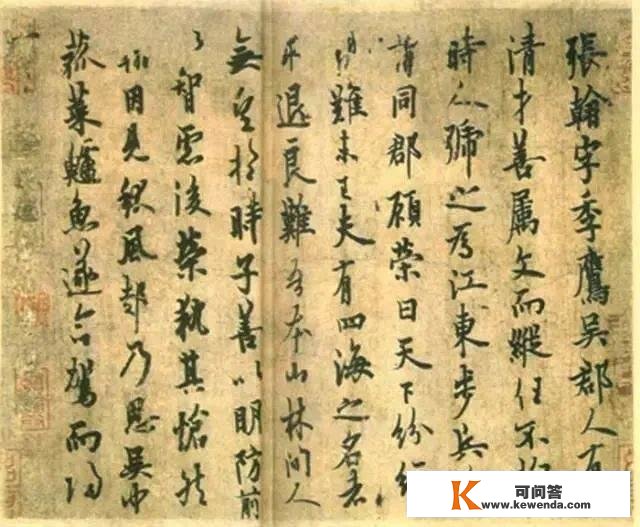 張翰字季鷹吳郡人有
清才善属文而縱任不拘
時人號之為江東步兵
謂同郡顧榮曰天下紛紜
難未已夫有四海之名者
求退良難吾本山林間人
無望於時子善以明防前
以智慮後榮執其愴然
翰因見秋風起乃思吳中
菰菜鱸魚遂命駕而歸
K 可问答
www.kewenda.com